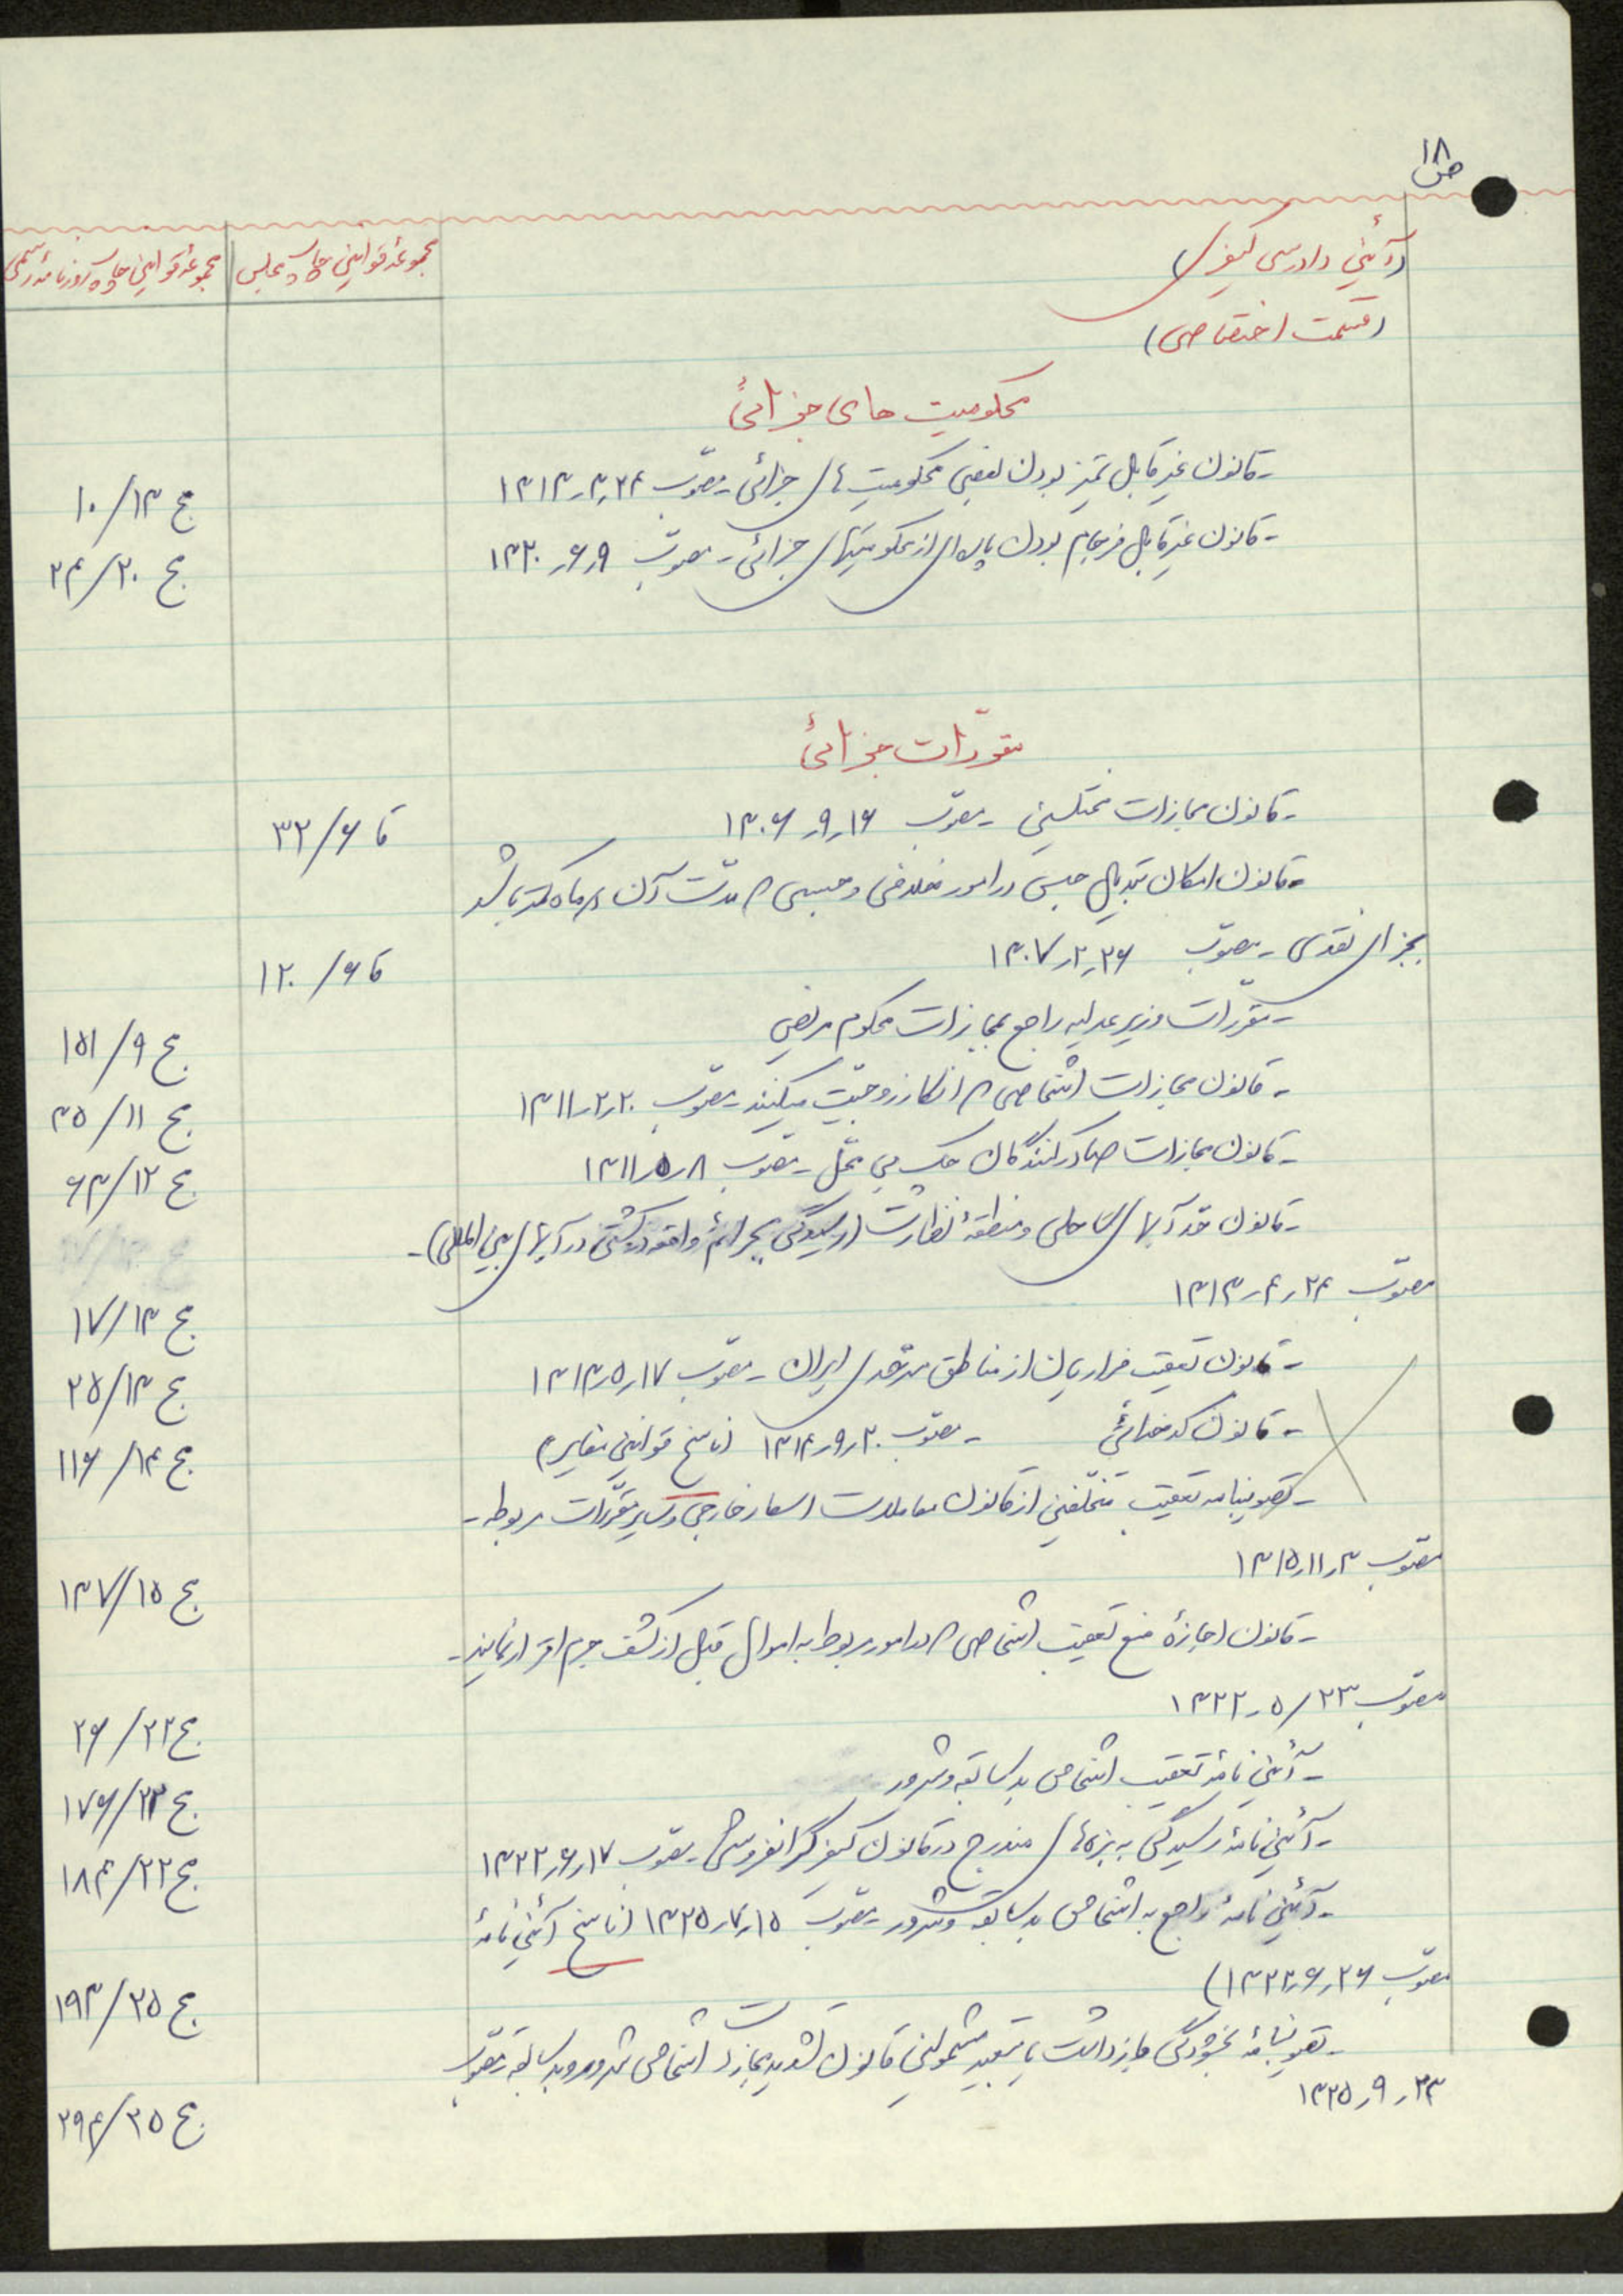 ص ۱۸
(آئین دادرسی کیفری)
(قسمت اختصاصی)
مجموعهٔ قوانین چاپ مجلس
مجموعهٔ قوانین چاپ روزنامهٔ رسمی
محکومیت های جزائی
- قانون غیر قابل تمیز بودن بعضی محکومیت های جزائی - مصوّب ۲۴ر۳ر۱۳۱۳
ج ۱۳/۱۰
- قانون غیر قابل فرجام بودن پاره‌ای از محکومیتهای جزائی - مصوّب ۹ر۶ر۱۳۲۰
ج ۲۰/۲۴
مقرّرات جزائی
- قانون مجازات مختلسین - مصوّب ۱۶ر۹ر۱۳۰۶
قا ۶/۳۲
- قانون امکان تبدیل حبس در امور خلافی و حبسی که مدّت آن از ماه کمتر باشد
بجزای نقدی - مصوّب ۲۶ر۲ر۱۳۰۷
قا ۶/۱۲۰
- مقرّرات وزیر عدلیه راجع بمجازات محکوم مریض
ج ۹/۱۵۱
- قانون مجازات اشخاصی که انکار زوجیّت میکنند - مصوّب ۲۰ر۲ر۱۳۱۱
ج ۱۱/۳۵
- قانون مجازات صادر کنندگان چک بی محلّ - مصوّب ۸ر۵ر۱۳۱۱
ج ۱۲/۶۳
- قانون حدّ آبهای ساحلی و منطقهٔ نظارت (رسیدگی بجرائم واقعه در کشتی در آبهای بین المللی) -
مصوّب ۲۴ر۴ر۱۳۱۳
ج ۱۳/۱۷
- قانون تعقیب فراریان از مناطق سرحدی ایران - مصوّب ۱۷ر۵ر۱۳۱۳
ج ۱۳/۲۵
- قانون کدخدائی - مصوّب ۲۰ر۹ر۱۳۱۴ (ناسخ قوانین مغایر)
ج ۱۴/۱۱۶
- تصویبنامه تعقیب متخلّفین از قانون معاملات اسعار خارجی و سایر مقرّرات مربوطه -
مصوّب ۳ر۱۱ر۱۳۱۵
ج ۱۵/۱۳۷
- قانون اجازهٔ منع تعقیب اشخاصی که در امور مربوط به اموال قبل از کشف جرم اقرار نمایند -
مصوّب ۲۳/۵ر۱۳۲۲
ج ۲۲/۲۶
- آئین نامهٔ تعقیب اشخاص بد سابقه و شرور
ج ۲۳/۱۷۶
- آئین نامهٔ رسیدگی به بزه های مندرج در قانون کیفر گرانفروشی - مصوّب ۱۷ر۶ر۱۳۲۲
ج ۲۲/۱۸۴
- آئین نامهٔ راجع به اشخاص بد سابقه و شرور - مصوّب ۱۵ر۷ر۱۳۲۵ (ناسخ آئین نامهٔ
مصوّب ۲۶ر۶ر۱۳۲۲)
ج ۲۵/۱۹۳
- تصویبنامهٔ بخشودگی بازداشت یا تبعید مشمولین قانون تشدید مجازات اشخاص شرور و بد سابقه - مصوّب
۲۳ر۹ر۱۳۲۵
ج ۲۵/۲۹۴